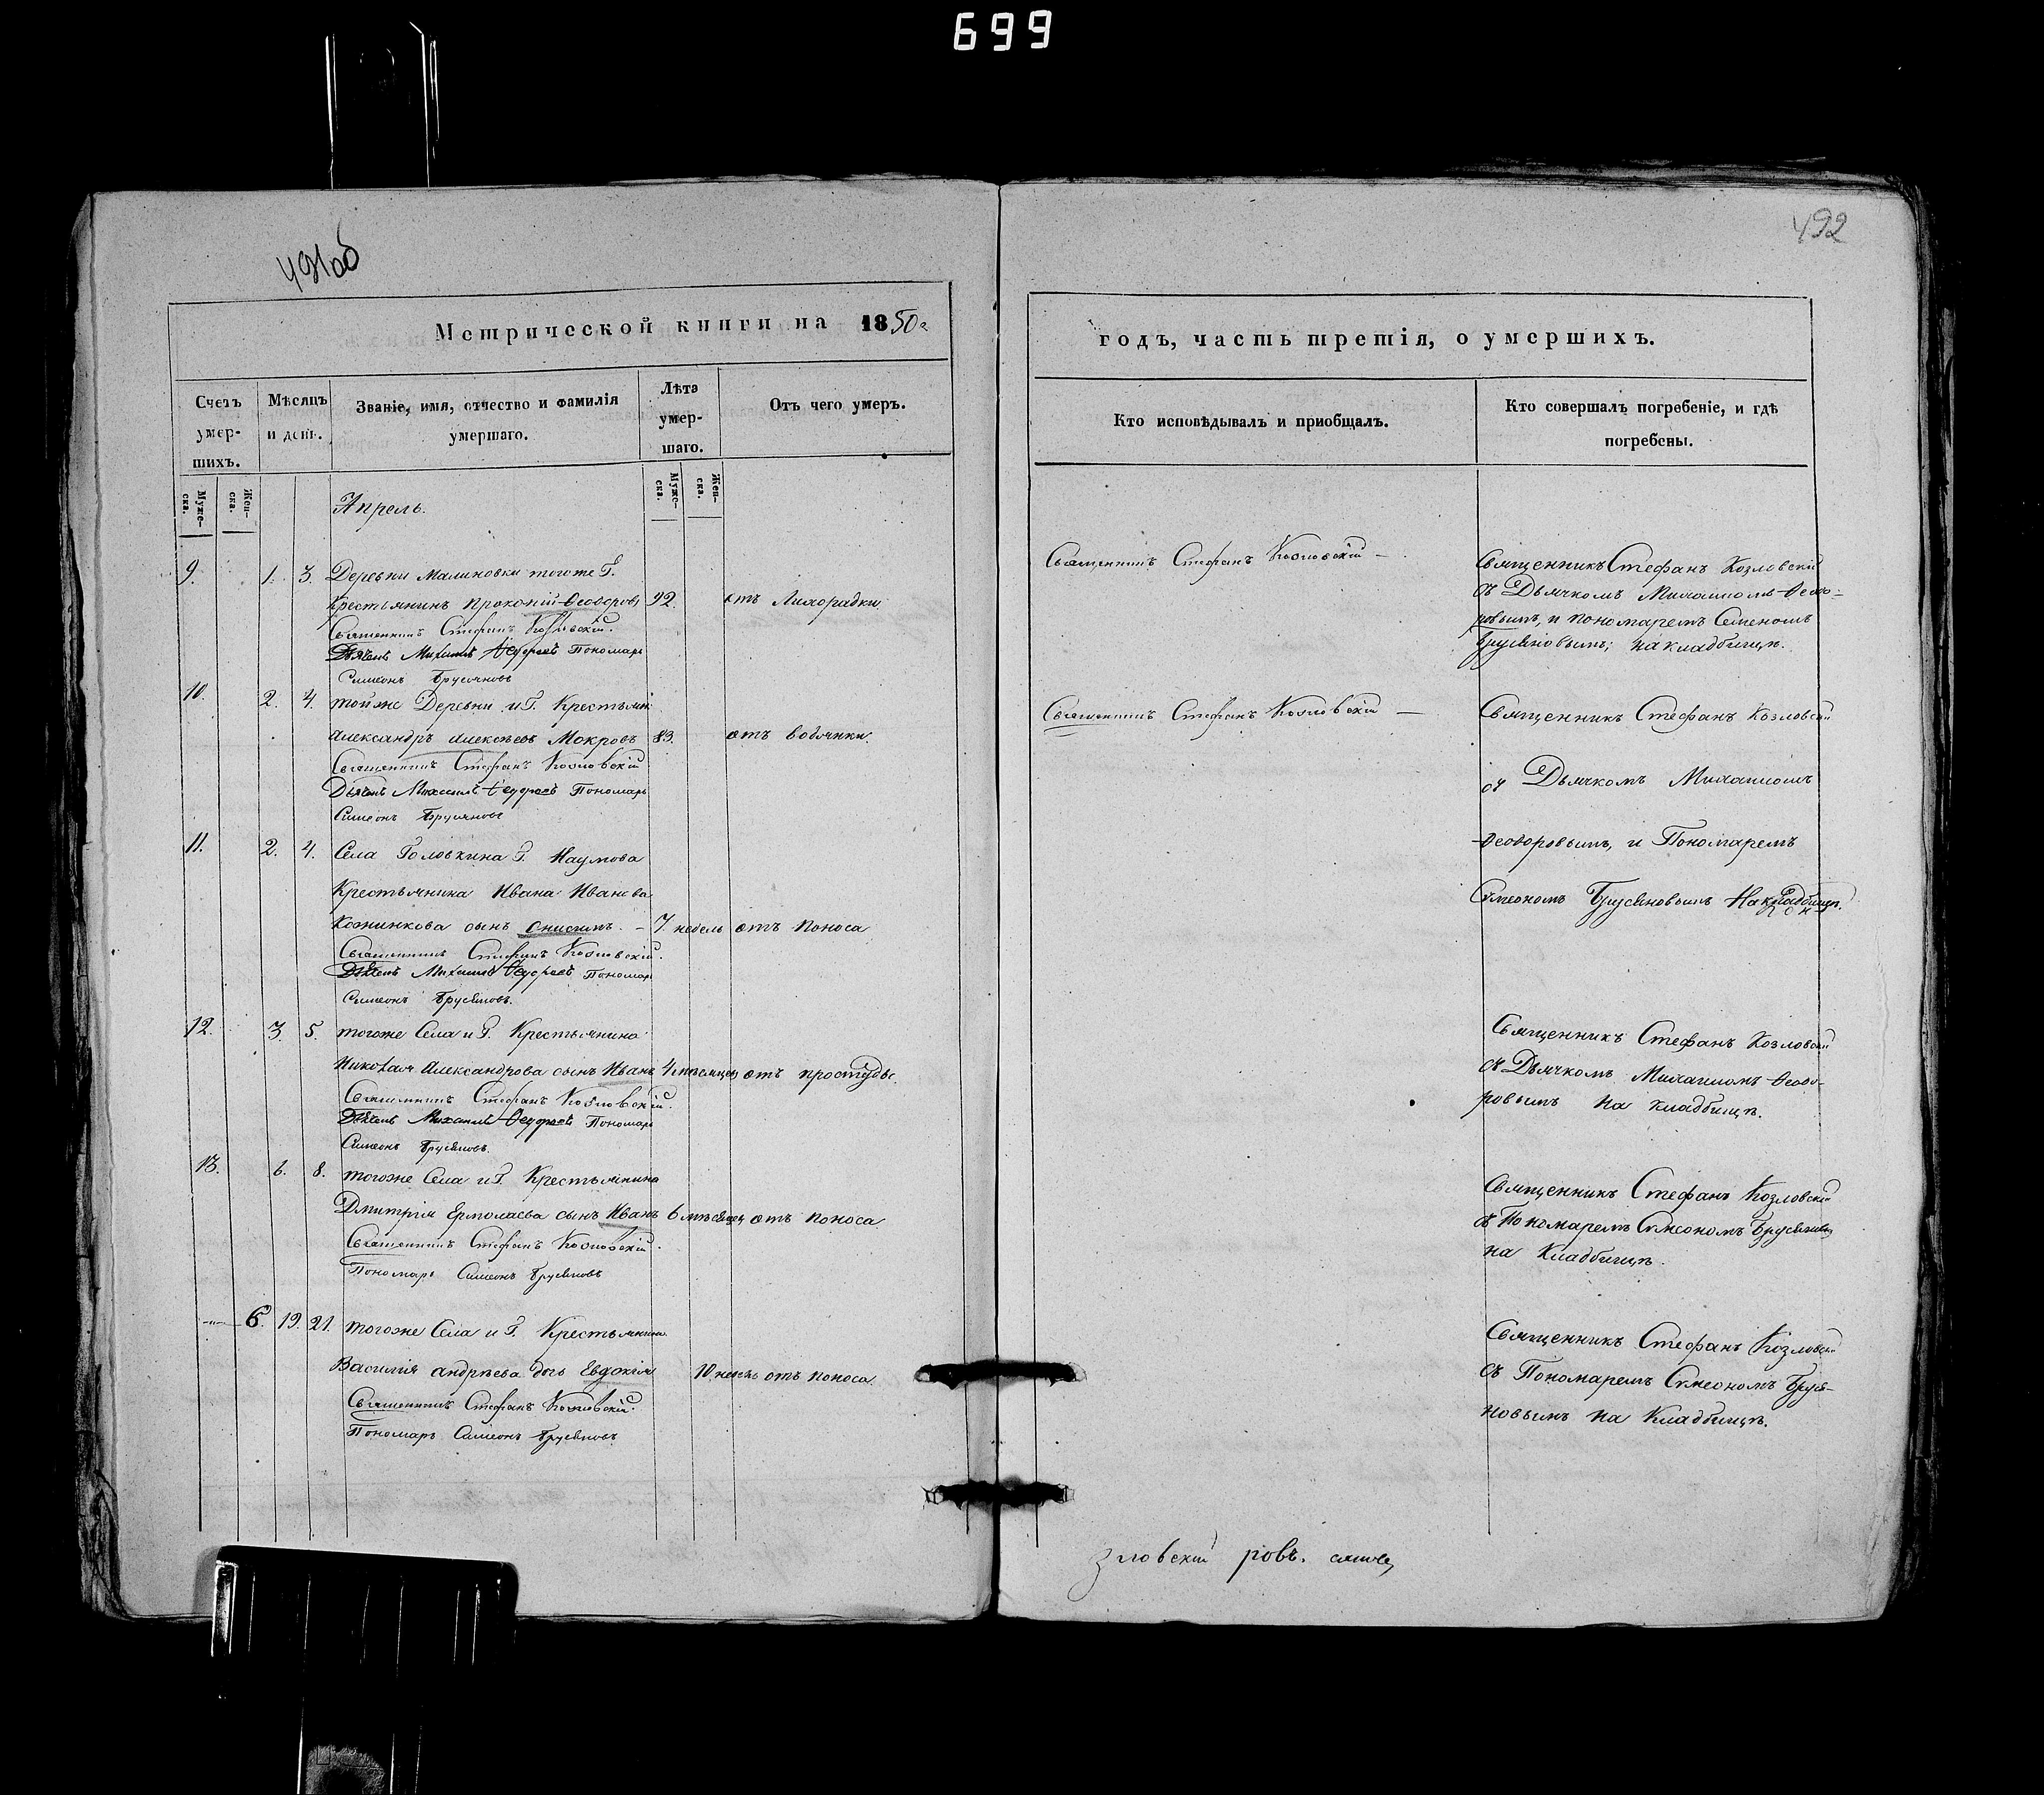 699
491 об
492
Метрической книги на 1850 г
годъ, часть третія, о умершихъ.
Счетъ умер-шихъ.
Мѣсяцъ и день.
Званіе, имя, отчество и фамилія умершаго.
Лѣта умер-шаго.
Отъ чего умеръ.
Кто исповѣдывалъ и пріобщалъ.
Кто совершалъ погребеніе, и гдѣ погребены.
Муже-ска.
Жен-ска.
Муже-ска.
Жен-ска.
Апрель.
9. 1. 3. Деревни Малиновки тогоже Г.
Крестьянинъ Прокопій Ѳеодоровъ 92. отъ Лихорадки
Священникъ Стефанъ Козловскій.
Дьячекъ Михаилъ Ѳедоровъ Пономарь
Симеонъ Брусяновъ
Священникъ Стефанъ Козловскій —
Священникъ Стефанъ Козловскій
съ Дьячкомъ Михаиломъ Ѳеодо-
ровымъ, и пономаремъ Семеномъ
Брусяновымъ; на кладбищѣ.
10. 2. 4. тойже Деревни и Г. Крестьянинъ
Александръ Алексѣевъ Мокровъ 83. отъ водянки.
Священникъ Стефанъ Козловскій
Дьячекъ Михаилъ Ѳедоровъ Пономарь
Симеонъ Брусяновъ
Священникъ Стефанъ Козловскій —
Священникъ Стефанъ Козловскій
съ Дьячкомъ Михаиломъ
Ѳеодоровымъ, и Пономаремъ
Сѵмеономъ Брусяновымъ На кладбищѣ.
11. 2. 4. Села Головкина Г. Наумова
Крестьянина Ивана Иванова
Кожинкова сынъ Онисимъ. — 7 недель отъ поноса
Священникъ Стефанъ Козловскій.
Дьячекъ Михаилъ Ѳедоровъ Пономарь
Симеонъ Брусяновъ.
12. 3. 5. тогоже Села и Г. Крестьянина
Николая Александрова сынъ Иванъ 4 мѣсяцев отъ простуды.
Священникъ Стефанъ Козловскій.
Дьячекъ Михаилъ Ѳедоровъ Пономарь
Симеонъ Брусяновъ.
Священникъ Стефанъ Козловскій
съ Дьячкомъ Михаиломъ Ѳеодо-
ровымъ на кладбищѣ.
13. 6. 8. тогоже Села и Г. Крестьянина
Дмитрія Ермолаева сынъ Иванъ 6 мѣсяцев отъ поноса
Священникъ Стефанъ Козловскій.
Пономарь Симеонъ Брусяновъ
Священникъ Стефанъ Козловскій
съ Пономаремъ Сѵмеономъ Брусяновымъ
на Кладбищѣ.
6. 19. 21. тогоже Села и Г. Крестьянина
Василія Андрѣева дочь Евдокія 10 недѣль отъ поноса.
Священникъ Стефанъ Козловскій.
Пономарь Симеонъ Брусяновъ
Священникъ Стефанъ Козловскій
съ Пономаремъ Сѵмеономъ Бруся-
новымъ на Кладбищѣ.
зловскій ровъ.